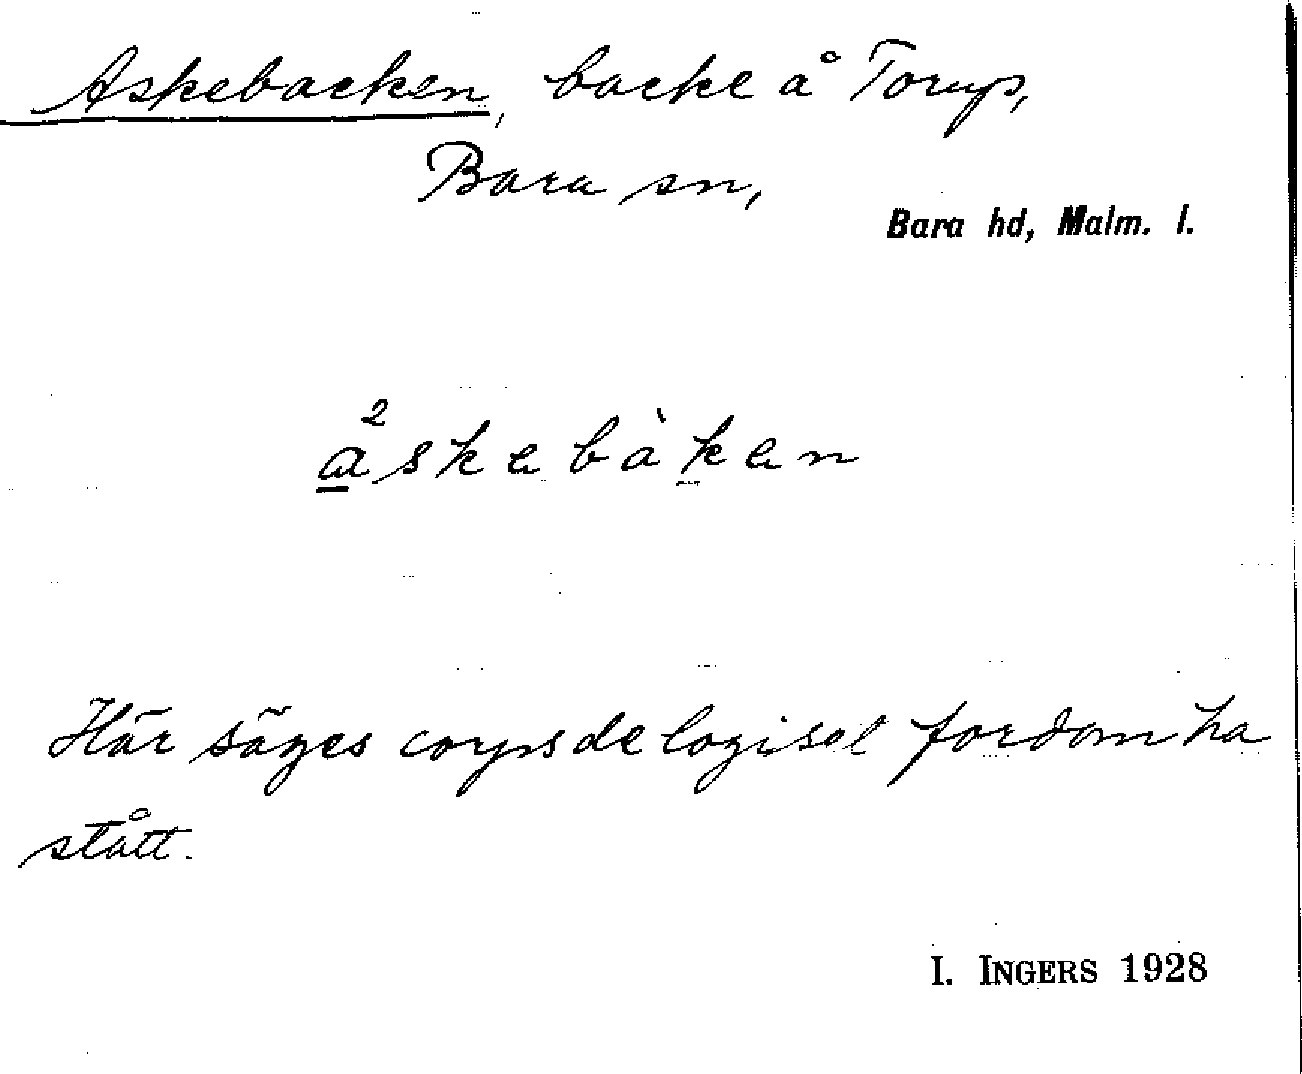 Askebacken, backe å Torup,
Bara sn,
Bara hd, Malm. l.
a²skebàken
Här säges fordom ha
stått.
I. INGERS 1928